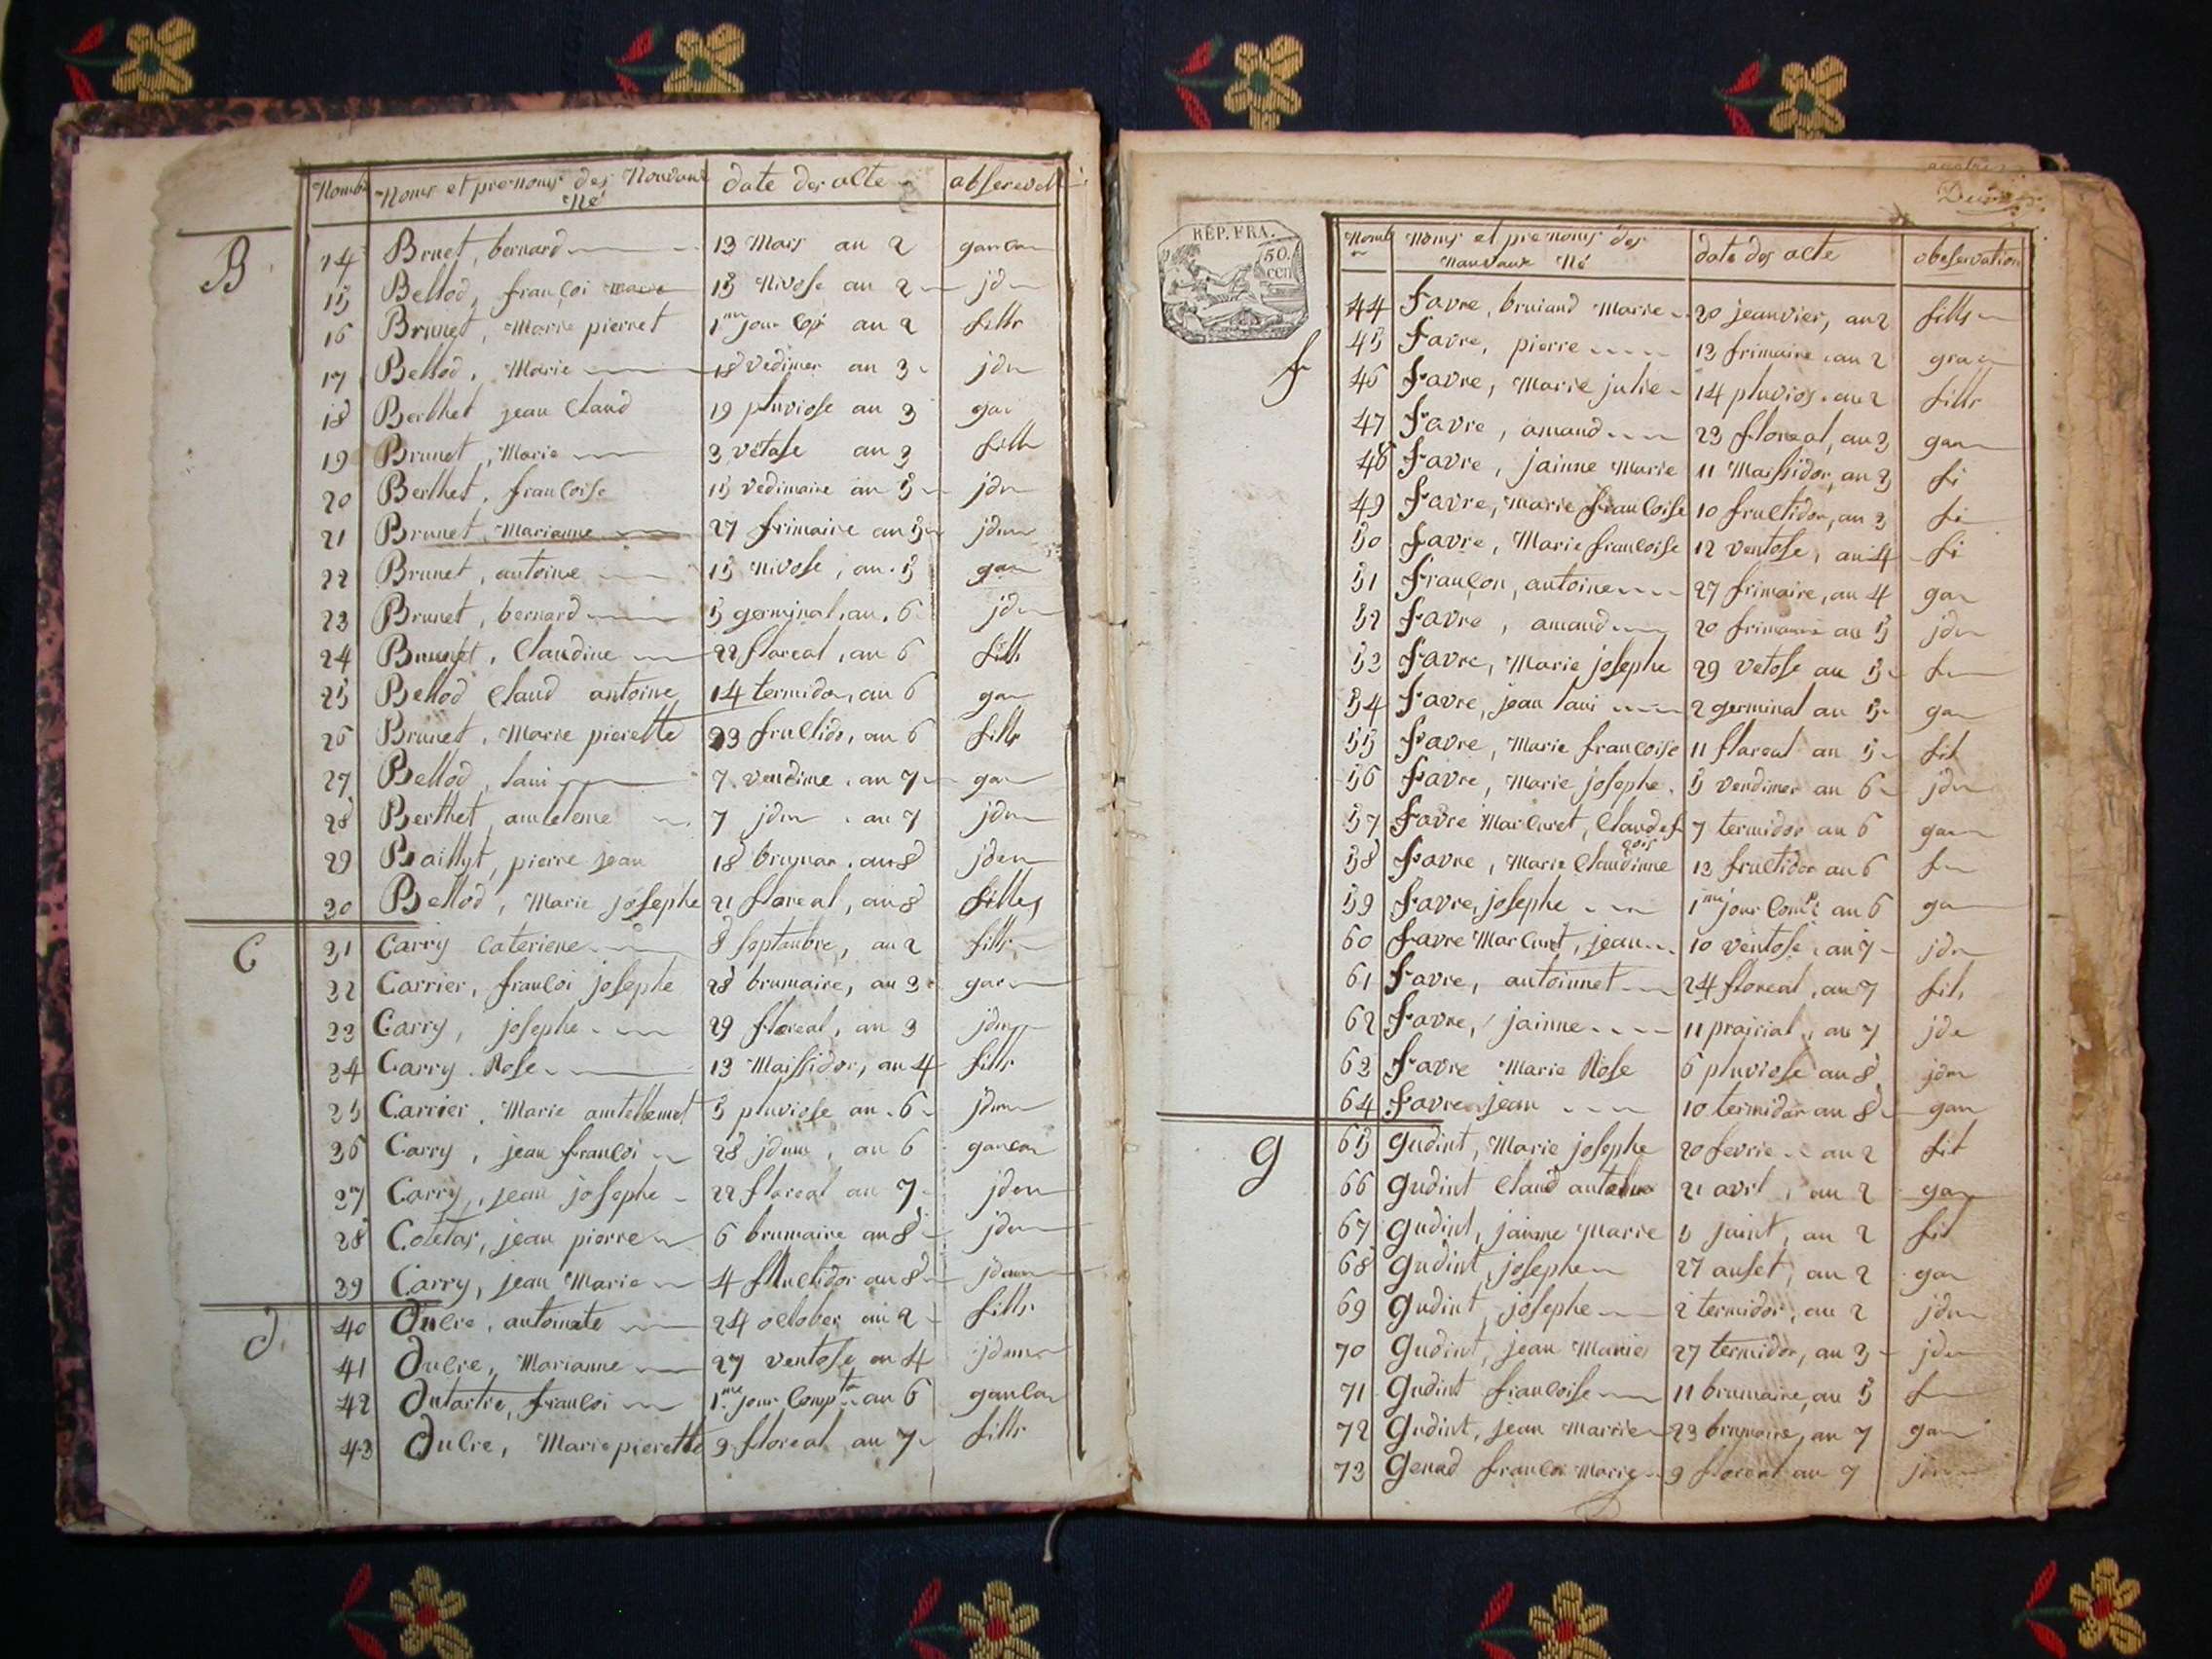 Nomb Noms et prenoms des Nouvaux Né date des acte observat
B
14 Brnet, bernard 13 Mars an 2 garcon
15 Bellod, françoi marie 15 Nivose an 2 jdn
16 Brunet, Marie pierret 1er jour Cop an 2 fills
17 Bellod, Marie 18 Vedimer an 3 jdn
18 Berthet jean Claud 19 pluviose an 3 gar
19 Brunet, Marie 3 vetose an 3 fills
20 Berthet, françoise 15 vedimaire an 5 jdn
21 Brunet, Marianne 27 frimaire an 5 jdm
22 Brunet, antoine 15 nivose, an 5 gan
23 Brunet, bernard 5 germinal, an 6 jdn
24 Brunet, Claudine 22 flareal, an 6 fills
25 Bellod Claud antoine 14 termidor, an 6 gan
26 Brunet, Marie pierette 23 fructido, an 6 fills
27 Bellod, laui 7 vendime, an 7 gan
28 Berthet, amteleme 7 jdm, an 7 jdm
29 Baillyt, pierre jean 18 brumar, an 8 jdem
30 Bellod, Marie josephe 21 flareal, an 8 filles
C
31 Carry cateriene 8 septanbre, an 2 fills
32 Carrier, françoi josephe 28 brumaire, an 3 garc
33 Carry, josephe 29 floreal, an 3 jdm
34 Carry Rose 13 Maissidor, an 4 fills
35 Carrier, Marie amtellemet 5 pluviose an 6 jdm
36 Carry, jean françoi 28 jdem, an 6 garcon
37 Carry, jean josephe 22 flareal an 7 jdem
38 Coletas, jean pierre 6 brumaire an 8 jdem
39 Carry, jean Marie 4 fructidor an 8 jdem
D
40 Ducre, antoinete 24 octobre an 2 fills
41 Ducre, Marianne 27 ventose an 4 jdem
42 Dutartre, françoi 1me jour Compte an 6 garcon
43 Ducre, Marie pierette 9 floreal an 7 fills
Deux
RÉP. FRA.
50. cen
Nomb Noms et prenoms des nauvaux Né date des acte observation
f
44 favre, bruiand Marie 20 jeanvier, an 2 fills
45 favre, pierre 13 frimaire an 2 gra
46 favre, Marie julie 14 pluvios, an 2 fills
47 favre, amand 23 floreal, an 3 gan
48 favre, jainne Marie 11 Maissidor, an 3 fi
49 favre, Marie françoise 10 fructidor, an 3 fi
50 favre, Marie françoise 12 ventose, an 4 fi
51 françon, antoine 27 frimaire, an 4 gan
52 favre, amand 20 frimaire an 5 jdn
53 favre, Marie josephe 29 vetose an 5 f
54 favre, jean laui 2 germinal an 5 gan
55 favre, Marie françoise 11 flareal an 5 fil
56 favre, Marie josephe 5 vendimer an 6 jdn
57 favre Marcuret, Claude f çois 7 termidor an 6 gan
58 favre, Marie Claudinne 13 fructidor an 6 f
59 favre, josephe 1me jour Compt an 6 ga
60 favre Marcuret, jean 10 ventose an 7 jdn
61 favre, antoinnet 24 floreal, an 7 fils
62 favre, jainne 11 prairial, an 7 jde
63 favre Marie Rose 6 pluviose an 8 jdm
64 favre, jean 10 termidor an 8 gan
G
65 gudint, Marie josephe 20 fevrie an 2 fil
66 gudint Claud antelme 21 avril, an 2 gan
67 gudint, jainne Marie 5 juint, an 2 fil
68 gudint, josephe 27 auset, an 2 gan
69 gudint, josephe 2 termidor, an 2 jdn
70 gudint, jean Marie 27 termidor, an 3 jdn
71 gudint françoise 11 brumaire, an 5 f
72 gudint, jean Marrie 23 brumaire, an 7 gan
73 genad françoi Marie 9 floreal an 7 jdem